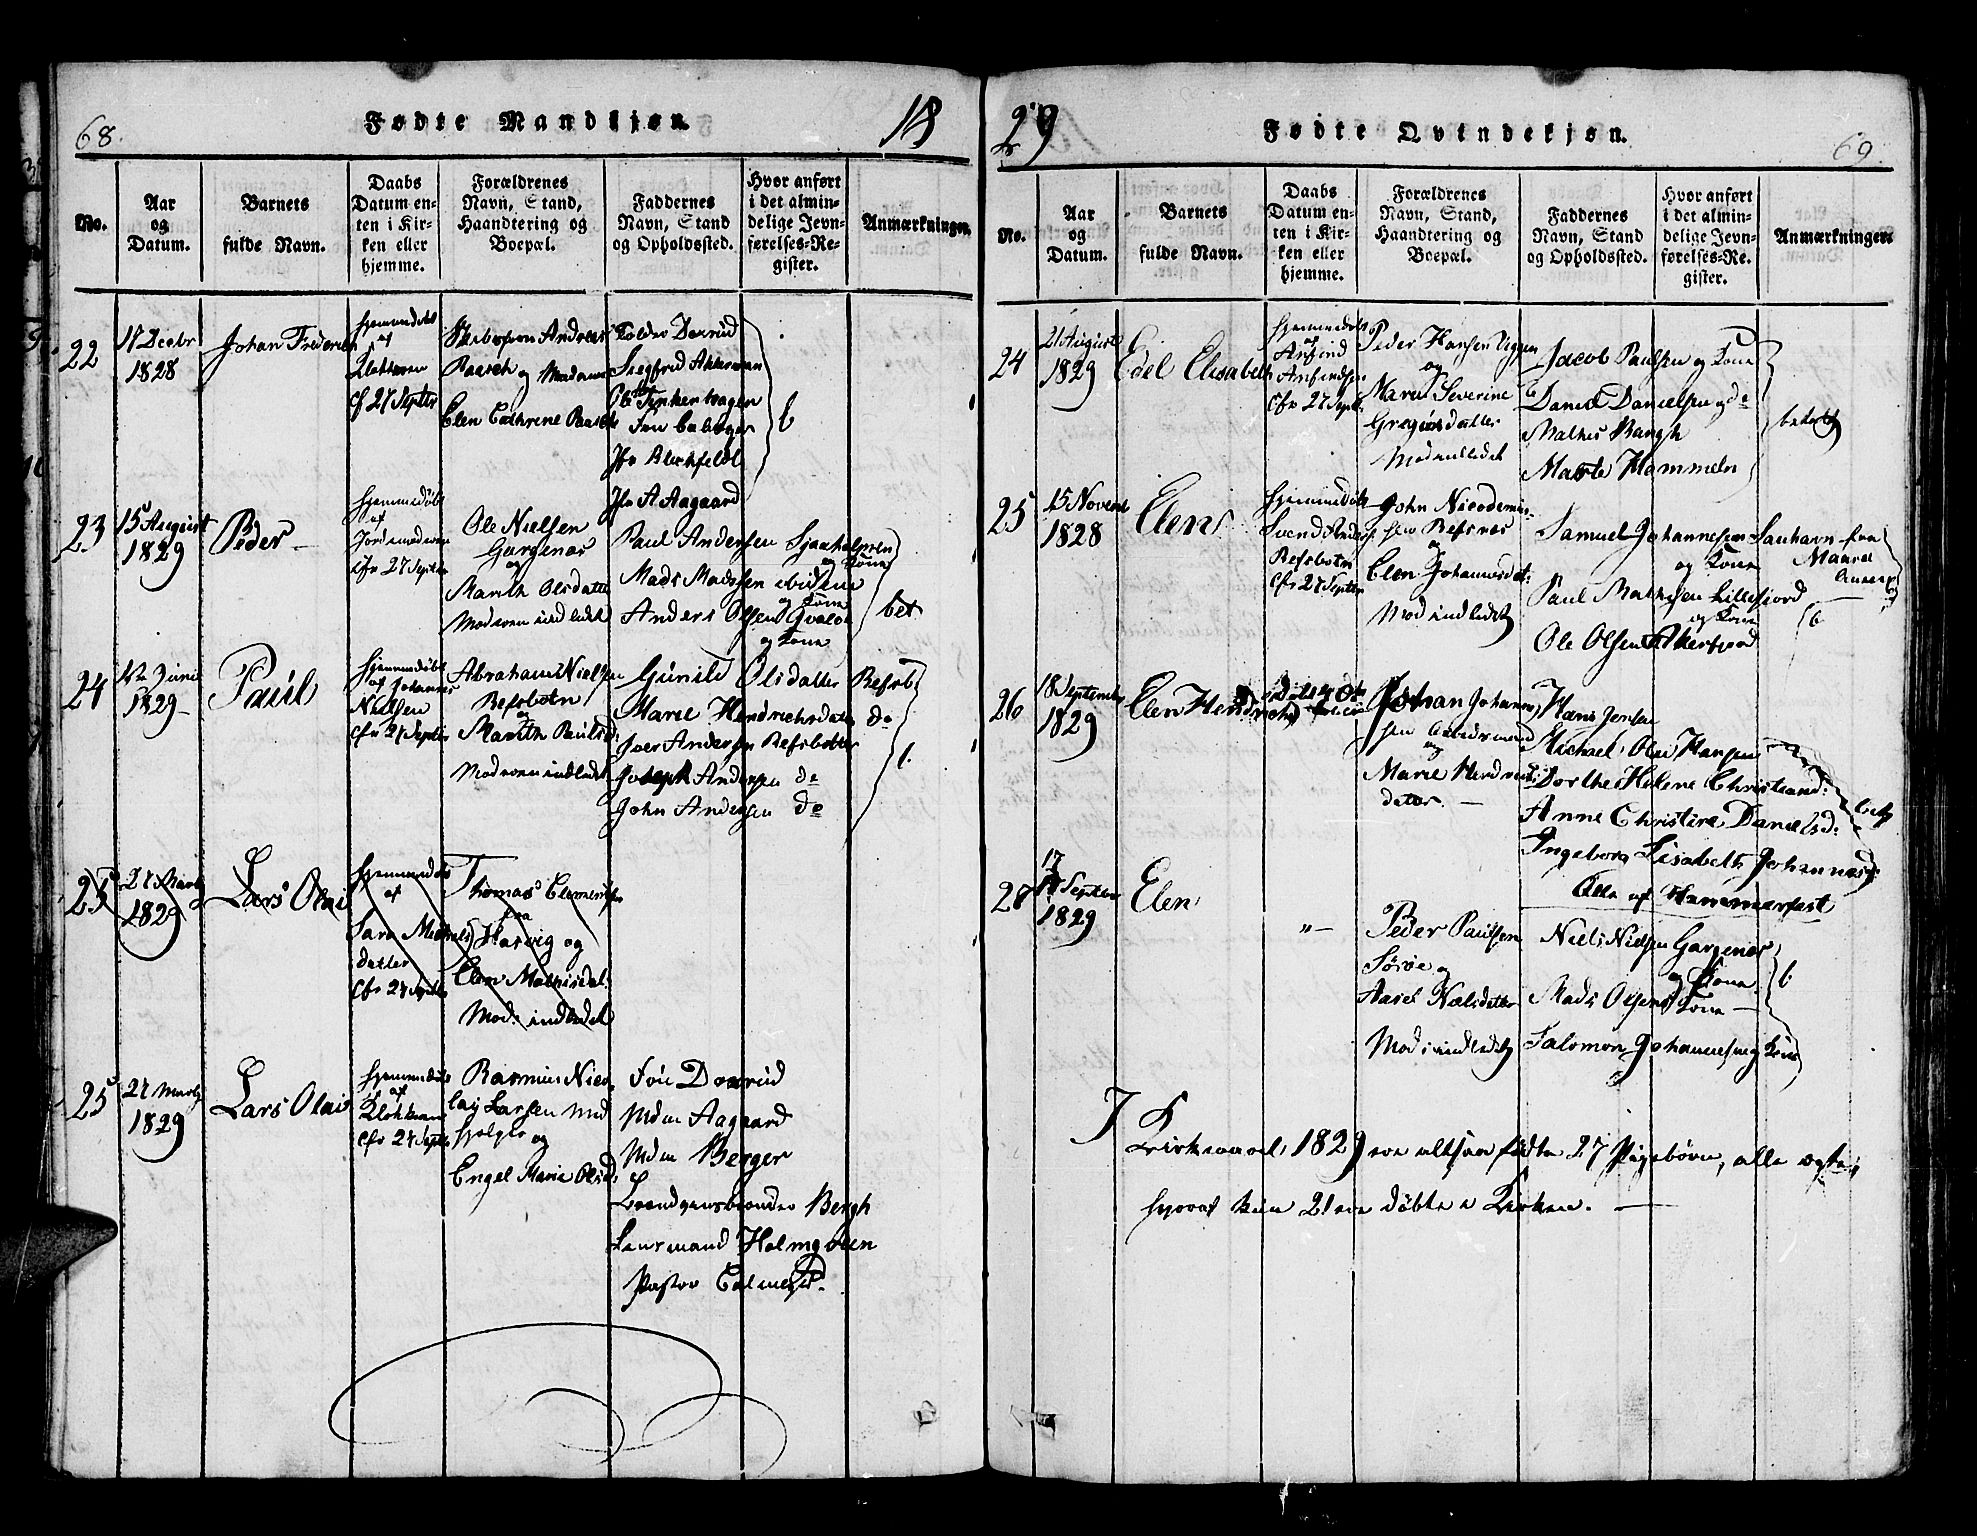 68.
Fødte Mandkjøn.
18
No.
Aar og Datum.
Barnets fulde Navn.
Daabs Datum enten i Kirken eller hjemme.
Forældrenes Navn, Stand, Haandtering og Boepæl.
Faddernes Navn, Stand og Opholdssted.
Hvor anført i det almindelige Jevnførelses-Register.
Anmærkninger.
22
17 Decbr
1828
Johan Frederik
hjemmedøbt
af
Klokkeren
cfr 27 Septbr
Andreas
Raasch og Madame
Elen Cathrine Raasch
Tolder Doxrud
Siegfrid Akkerman
Ole Finkenhagen
Jfr Blechfeldt
Jfr A Aagaard
b
23
15 August
1829
Peder
hjemmedøbt
af
Jordemoderen
cfr 27 Septbr
Ole Nielsen
Gargenæs
og
Marith Olsdatter
Moderen indledet
Paul Andersen
og Kone
Mads Madssen
og Kone
Anders Olsen
og Kone
bet
24
Juni
1829
Paul
hjemmedøbt
af Johannes
Nielsen
cfr 27 Septbr
Abraham Nielsen
Refsbotn
og
Marith Paulsd:
Moderen indledet
Gunild Olsdatter Refsb
Marie Hendrichsdatter do
Iver Andersen Refsbotten
Joseph Andersen do
John Andersen do
b.
25
27 Marts
1829
Lars Olai
hjemmedøbt
af
Sara Michels
datter
cfr 27 Septbr
Thomas Clemetsen
fra
Hasvig og
Elen Mathisdat:
Mod: indledet
25
27 Marts
1829
Lars Olai
hjemmedøbt
af
Klokkeren
cfr 27 Septbr
Rasmus Nico
lai Larsen Med
hjelper og
Engel Marie Olsd:
Fru Doxrud
Mdm Aagaard
Mdm Berger
Bergh
Lensmand Holmgreen
Pastor Colmeyer.
29
Fødte Qvindekjøn.
69.
No.
Aar og Datum.
Barnets fulde Navn.
Daabs Datum enten i Kirken eller hjemme.
Forældrenes Navn, Stand, Haandtering og Boepæl.
Faddernes Navn, Stand og Opholdssted.
Hvor anført i det almindelige Jevnførelses-Register.
Anmærkninger.
24
21 August
1829
Edel Elisabeth
hjemmedøbt
af
Anfind
Anfindsen
cfr 27 Septb.
Peder Hansen
og
Maren Severine
Gregersdatter
Mod indledet
Jacob Paulsen og Kone
Daniel Danielsen og do
Mathis Bangh
Marte Hammeln
betalt
25
15 Novem
1828
Elen
hjemmedøbt
af
Svend Anders
Refsbotn
cfr 27 Septbr
John Nicodemus
sen Refsnes
og
Elen Johannesdat:
Mod indledet
Samuel Johannesen
og Kone
Paul Mathisen Lillefiord
og Kone
Ole Olsen Akerfiord
b
26
18 September
1829
Elen Hendrichs
Johan Johannes
sen Arbeidsmand
og
Marie Hendrichs
datter.
Hans Jensen
Michael Olai Hansen
Dorthe Helene Christiand:
Anne Christine Danielsd:
Ingeborg Lisabeth Johannesd:
Alle af Hammerfest
bet
27
17 Septbr
1829
Elen
"
Peder Paulsen
Sørøe og
Aasel Nielsdatter
Mod: indledet
Niels Nielsen Gargenæs
og Kone
Mads Olsen Kone
Salomon Johannesen og Kone
b
I
Kirkeaaret 1829 ere altsaa fødte 27 Pigebørn, alle ægte,
hvoraf kun 21 ere døbte i Kirken.